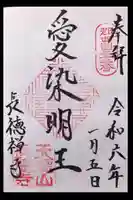 奉拝
令和六年
一月五日
愛染明王
長徳禅寺